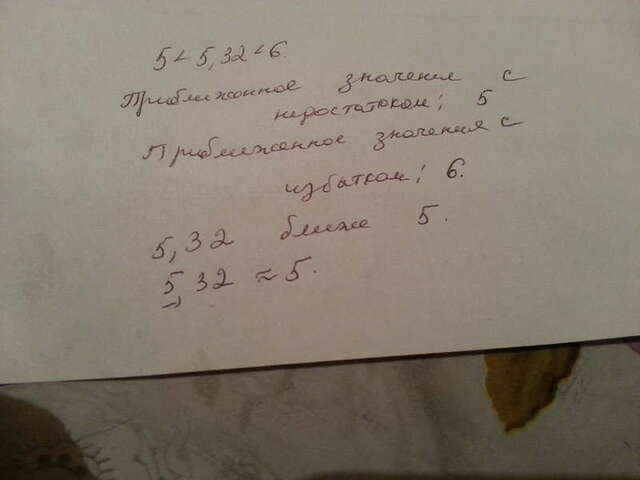 5 < 5,32 < 6.
Приближенное значения с
недостатком; 5
Приближенное значения с
избытком; 6.
5,32 ближе 5.
5,32 ≈ 5.